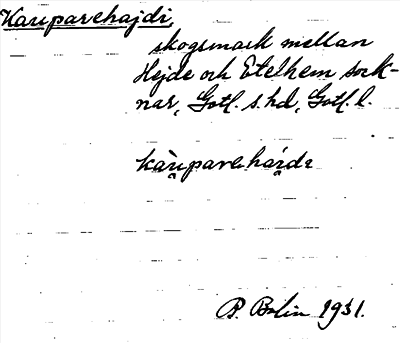 Kauparehajdi,
skogsmark mellan
Hejde och Etelhem sock-
nar, Gotl. s. hd, Gotl. l.
kàu̯parehái̯dɩ
B. Bolin 1931.